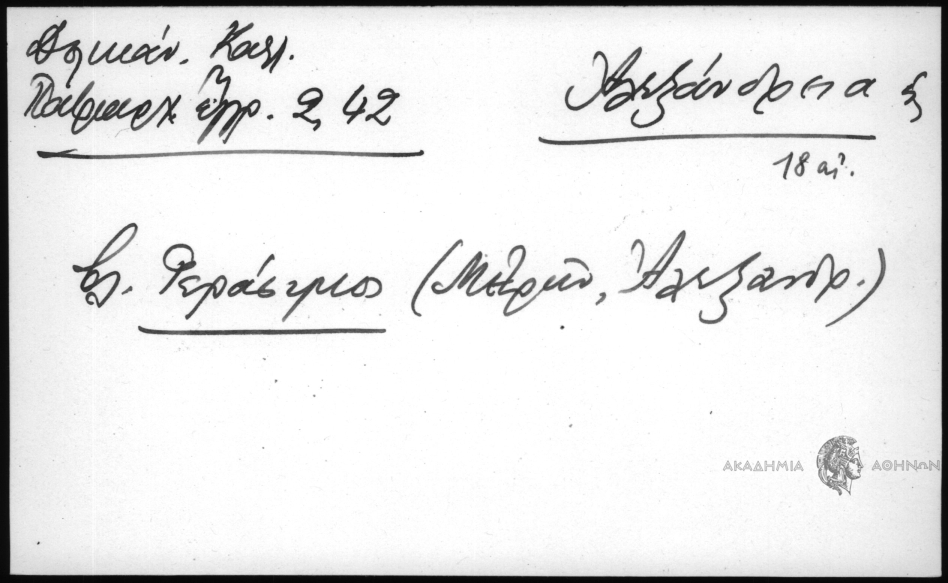 Δελικάν. Καλλ.
Πατριαρχ. ἔγγρ. 2, 42
Ἀλεξάνδρεια ἡ
18 αἰ.
βλ. Γεράσιμος (Μητρ., Ἀλεξανδρ.)
ΑΚΑΔΗΜΙΑ ΑΘΗΝΩΝ